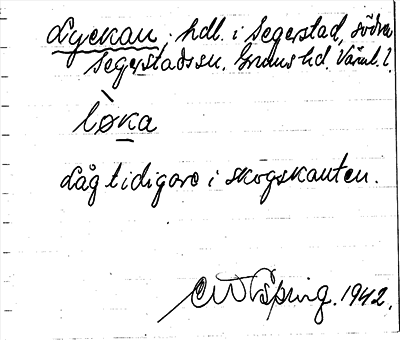 Lyckan, hdl. i Segerstad, södra
Segerstads sn. Grums hd. Värml. l.
lo̠ka
Låg tidigare i skogskanten.
1942.